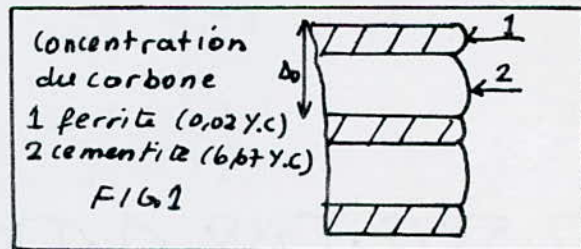 Concentration
du carbone
1 ferrite (0,02 %.C)
2 cementite (6,67 %.C)
FIG1
Δ₀
1
2